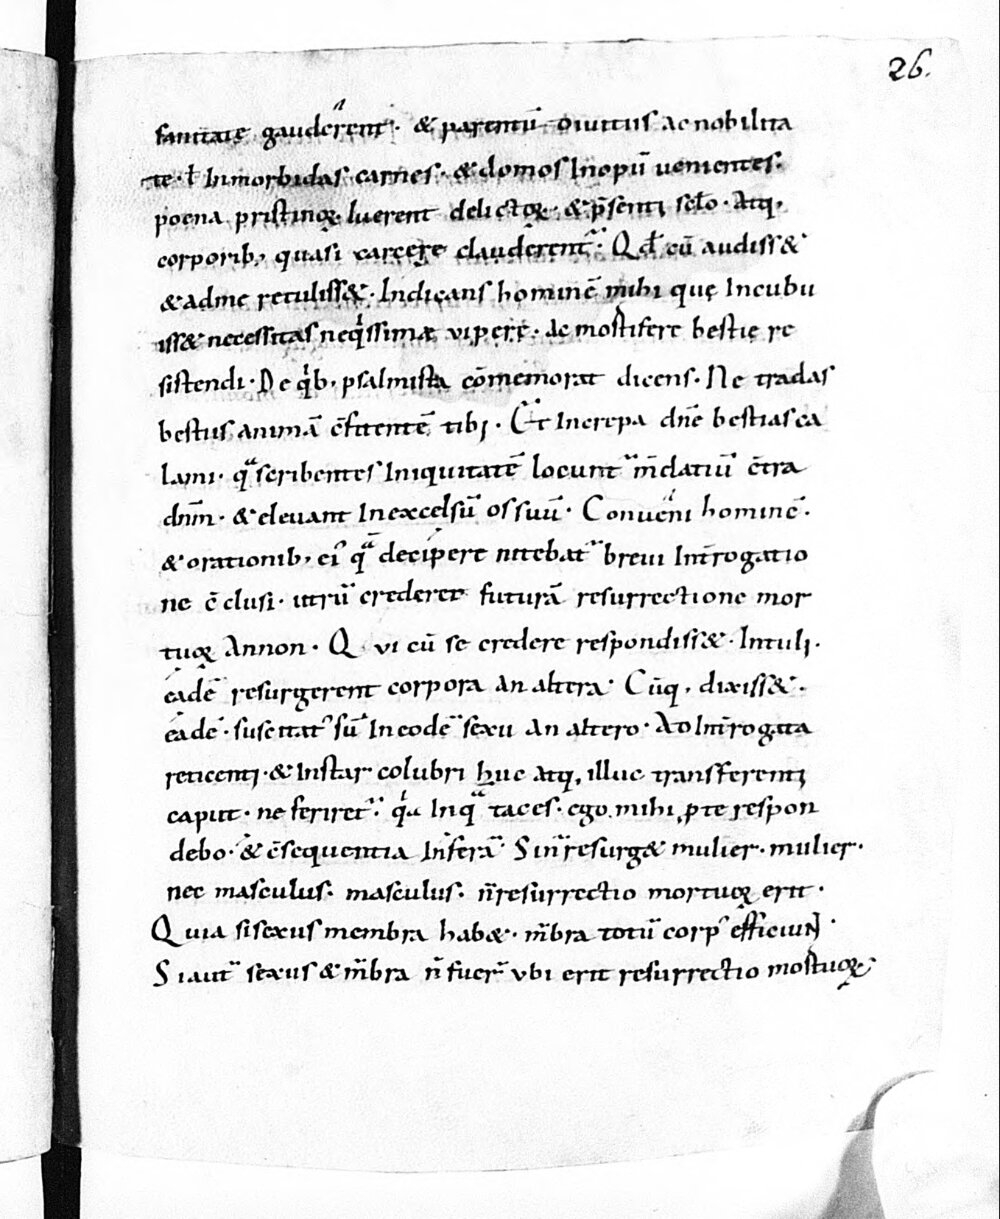 26.
sanitate gauderent. & parentū diuitiis ac nobilita
te. ł In morbidas carnes. & domos Inopū uenientes.
poena pristinoꝝ luerent delictoꝝ. & p̄senti sclo. Atq,
corporib, quasi carcere clauderent᷑. Qd̄ cū audiss&
& ad me retuliss&. Indicans hominē mihi quę Incubu
iss& necessitas neqͥssimæ viperę. Ac mortiferę bestię re
sistendi. De qͥb, psalmista cōmemorat dicens. Ne tradas
bestiis animā c̄fitentē tibi. Et Increpa dn̄e bestias ca
lami. qͣ scribentes Iniquitatē locunt᷑ m̄datiū c̄tra
dnm̄. & eleuant In excelsū os suū. Conueni hominē.
& orationib, eiꝰ qͣ decipere nitebat᷑ breui Int̄rogatio
ne c̄clusi. utrū crederet futurā resurrectione mor
tuoꝝ Annon. Qui cū se credere respondiss&. Intuli.
eadē resurgerent corpora an altera. Cūq, dixiss&.
eadē. suscitatꝰ sū In eodē sexu An altero. Ad Int̄rogata
reticenti. & Instar colubri huc Atq, illuc transferenti
caput. ne feriret᷑. qͥa Inqͣ taces. ego mihi ꝓ te respon
debo. & c̄sequentia Inferā. Si n̄ resurg& mulier. mulier.
nec masculus. masculus. n̄ resurrectio mortuoꝝ erit.
Quia si sexus membra hab&. m̄bra totū corpꝰ efficiunt.
Si aut̄ sexus & m̄bra n̄ fuer̄ vbi erit resurrectio mortuoꝝ